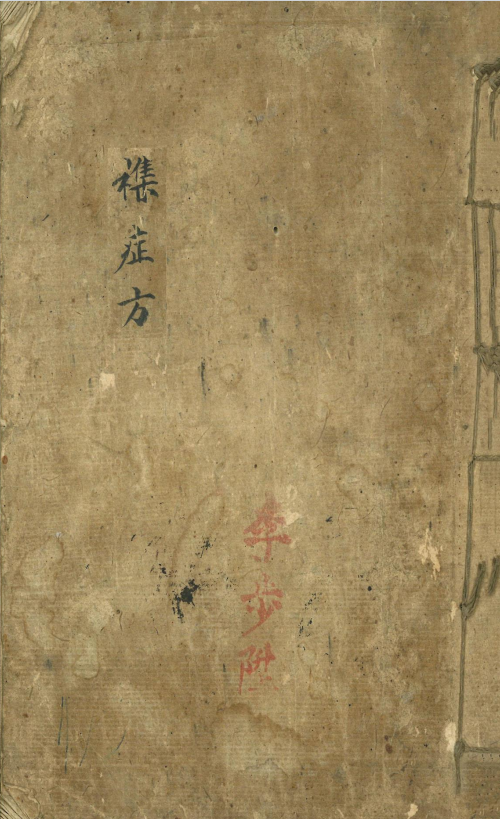 襍症方
李步陞